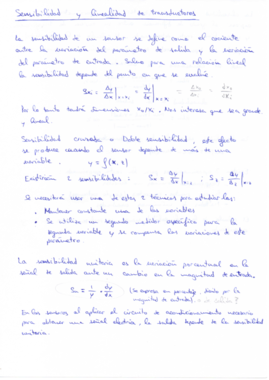 Sensibilidad y linealidad de transductores
La sensibilidad de un sensor se define como el cociente
entre la variación del parámetro de salida y la variación
del parámetro de entrada. Salvo para una relación lineal
la sensibilidad depende del punto en que se analice.
Por lo tanto tendrá dimensiones Xs/Xe. Nos interesa que sea grande
y lineal.
Sensibilidad cruzada o Doble sensibilidad, este efecto
se produce cuando el sensor depende de más de una
variable. y = f(x, z)
Existirán 2 sensibilidades: Sx = Δy/Δx ; Sz = Δy/Δz
Se necesitará usar una de estas 2 técnicas para estudiarlas:
• Mantener constante una de las variables
• Se utiliza un segundo medidor específico para la
segunda variable y se compensa las variaciones de este
parámetro
La sensibilidad unitaria es la variación porcentual en la
señal de salida ante un cambio en la magnitud de entrada.
Su = 1/y · Δy/Δx (Se expresa en porcentaje, dividido por la
magnitud de entrada)
En los sensores al aplicar el circuito de acondicionamiento necesario
para obtener una señal eléctrica, la salida depende de la sensibilidad
unitaria.